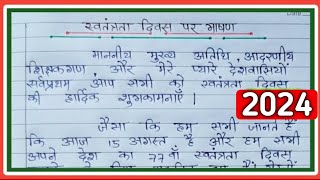 Date
स्वतंत्रता दिवस पर भाषण
माननीय मुख्य अतिथि, आदरणीय
शिक्षकगण और मेरे प्यारे देशवासियों
सर्वप्रथम आप सभी को स्वतंत्रता दिवस
की हार्दिक शुभकामनाएँ ।
2024
जैसा कि हम सभी जानते हैं
कि आज 15 अगस्त है और हम सभी
अपने देश का 77वाँ स्वतंत्रता दिवस